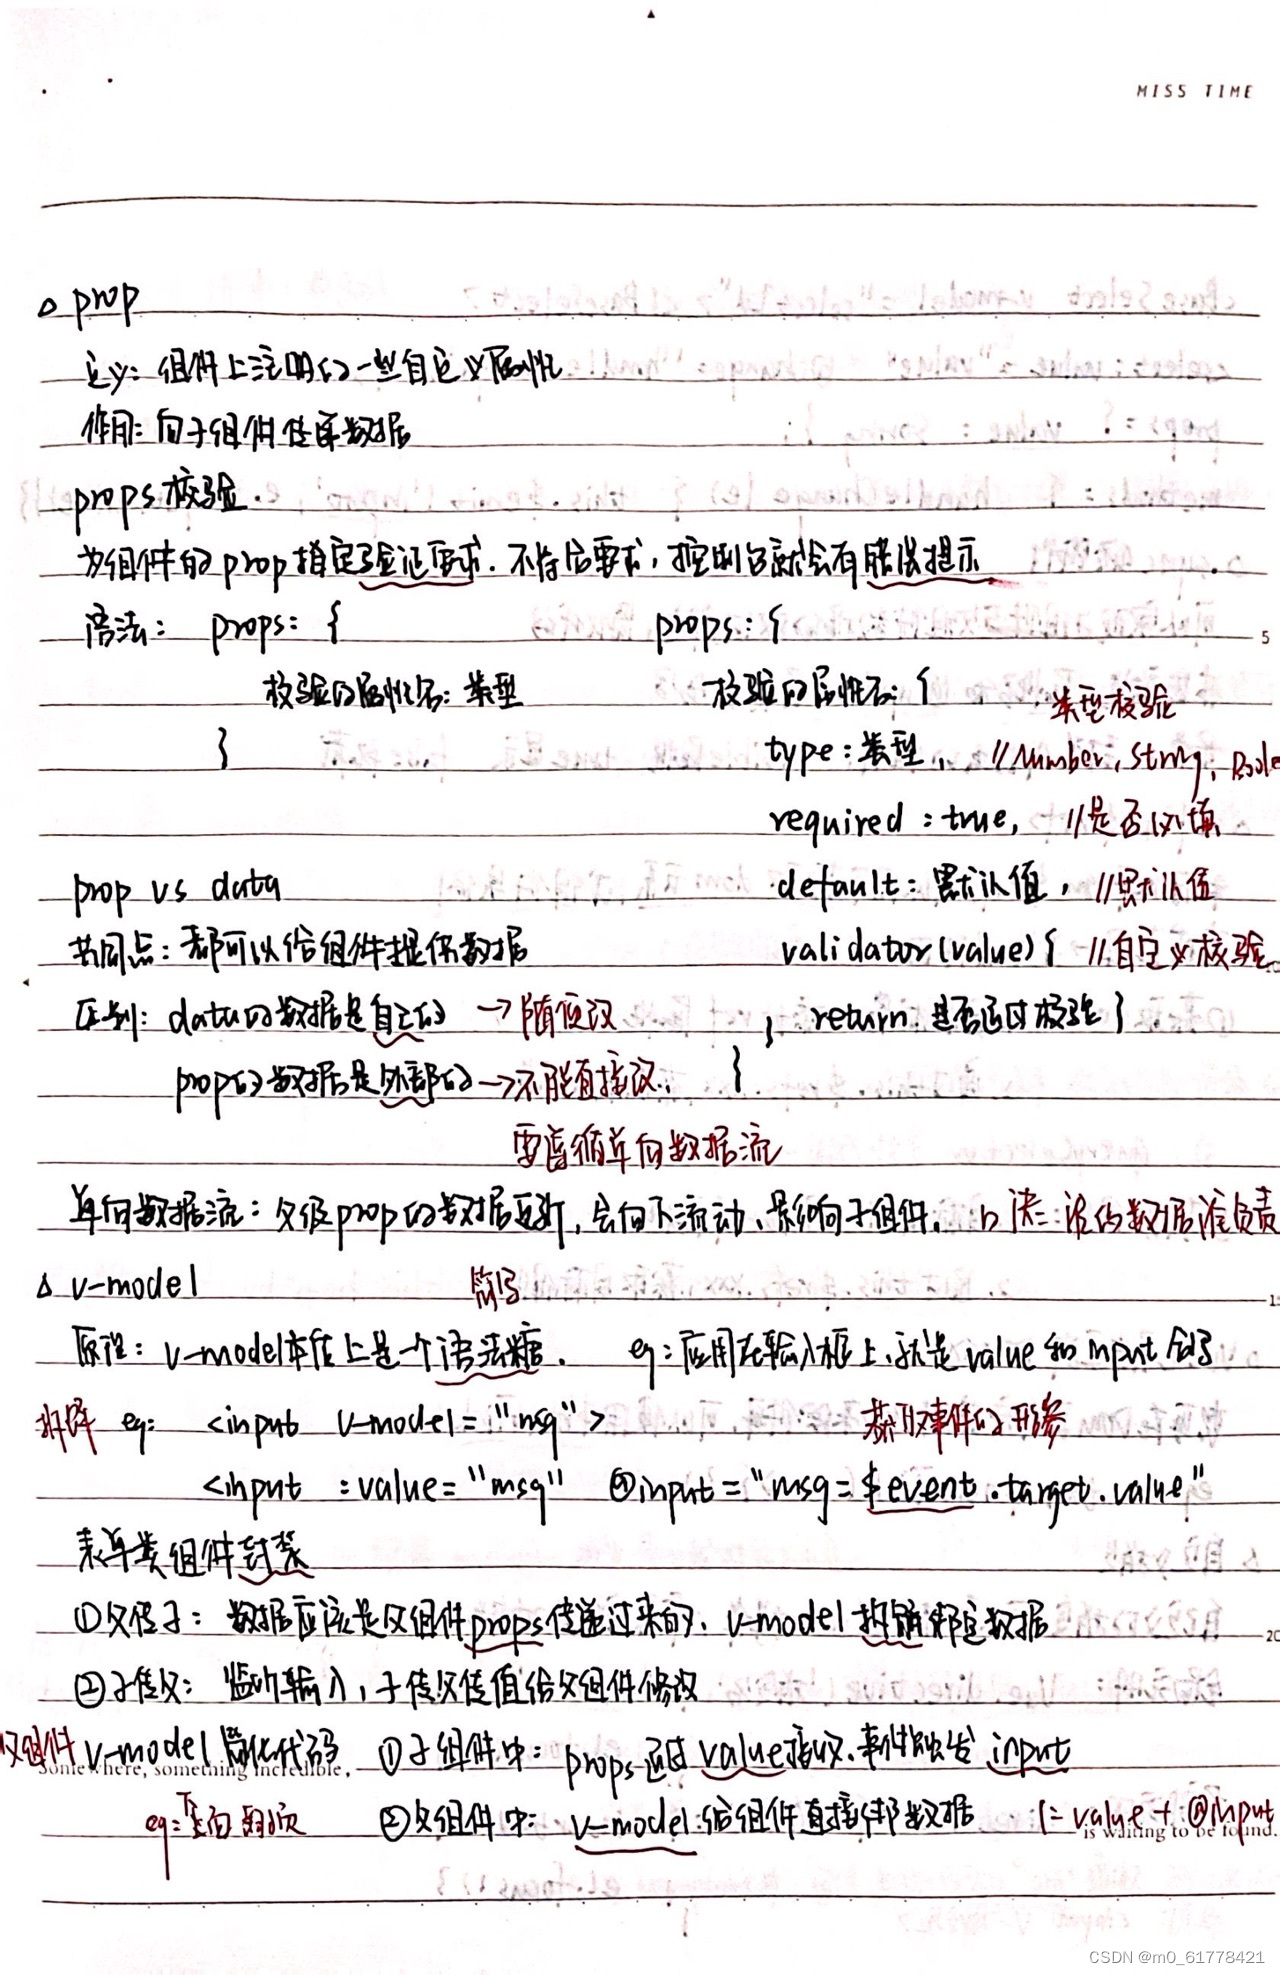 MISS TIME
△ prop
定义：组件上注册的一些自定义属性
作用：向子组件传递数据
props校验.
为组件的prop指定验证要求. 不符合要求，控制台就会有错误提示
语法： props: {
校验的属性名: 类型
}
props: {
校验的属性名: {
类型校验
type: 类型, //Number, String, Boole
required: true, //是否必填
default: 默认值, //默认值
validator(value) { //自定义校验
return 是否通过校验 }
}
5
prop vs data
共同点：都可以给组件提供数据
区别：data的数据是自己的 →随便改
prop的数据是外部的→不能直接改.
要遵循单向数据流
单向数据流：父级prop的数据更新, 会向下流动, 影响子组件.
谁的数据谁负责
△ v-model
简写
原理：v-model本质上是一个语法糖. eg：应用在输入框上, 就是value 和 input 合写
拆解 eg: <input v-model="msg">
获取事件的形参
<input :value="msg" @input="msg=$event.target.value"
表单类组件封装
①父传子：数据应该是父组件props传递过来的, v-model 拆解绑定数据
20
②子传父：监听输入, 子传父传值给父组件修改
父组件 v-model 简化代码 ①子组件中：props通过value接收, 事件触发 input
Somewhere, something incredible,
②父组件中：v-model 给组件直接绑数据 (= value + @input
is waiting to be found.
CSDN @m0_61778421